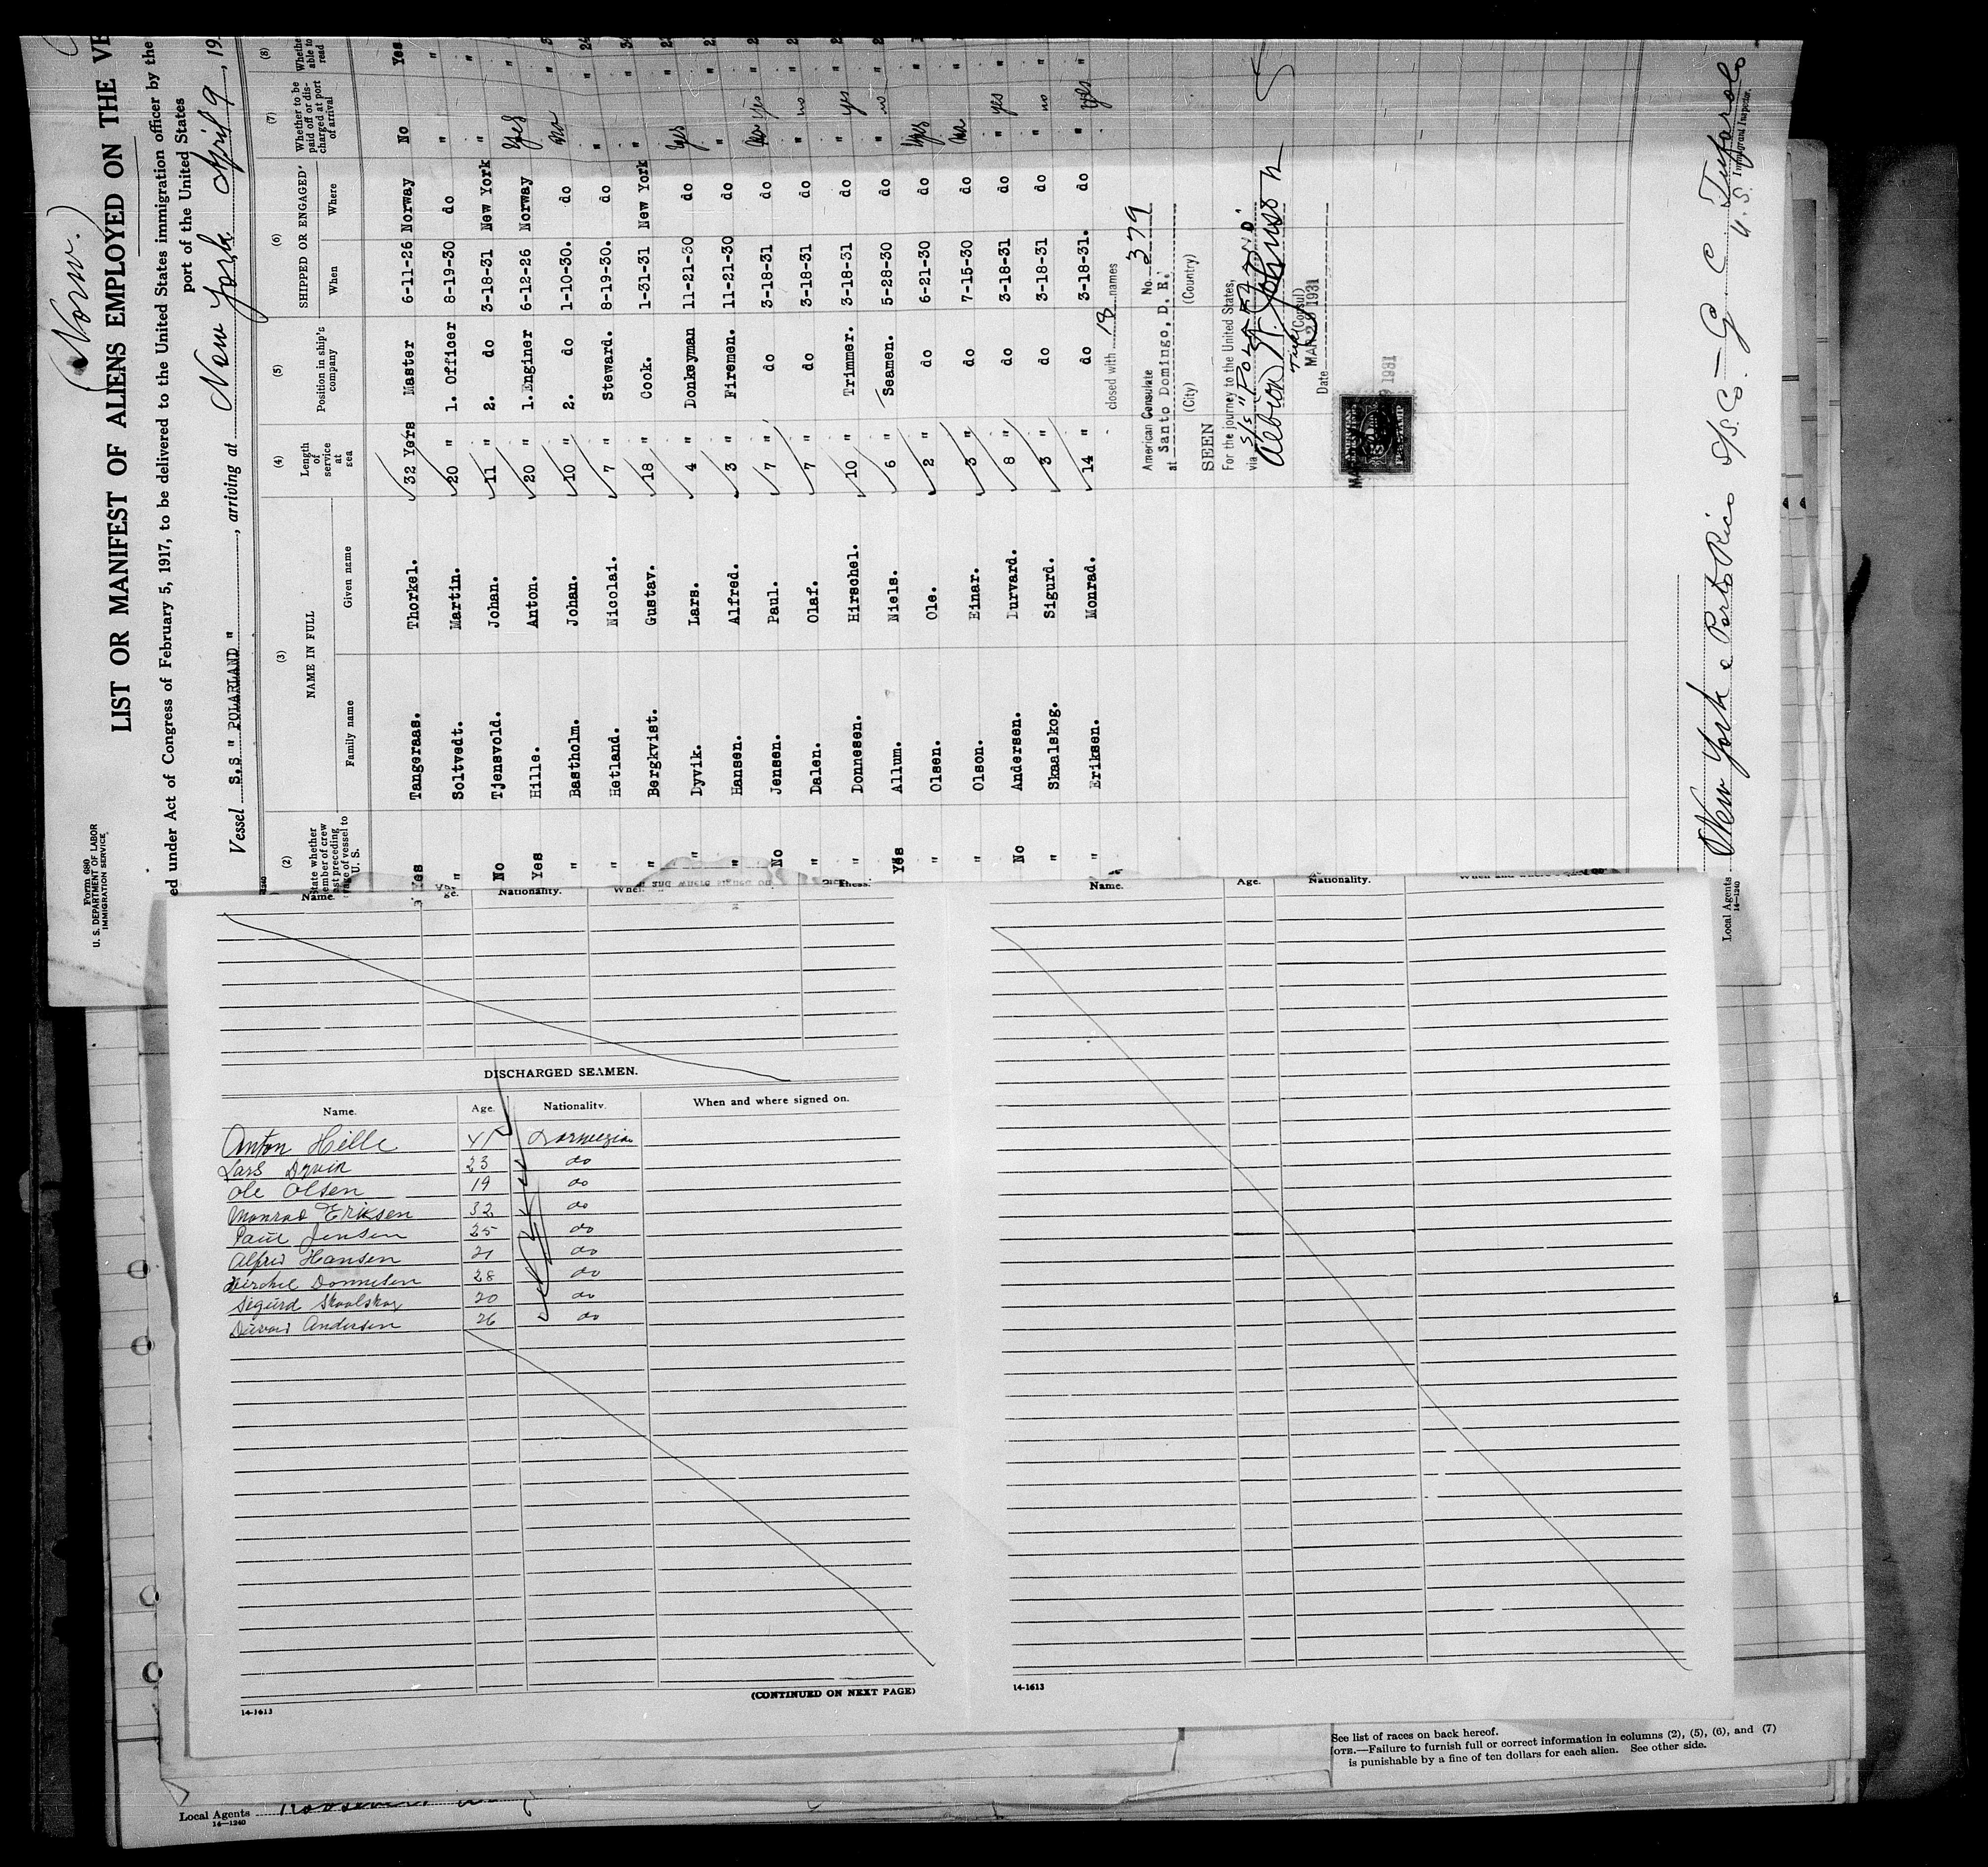 (Norw.)
Form 680
U. S. DEPARTMENT OF LABOR
IMMIGRATION SERVICE
LIST OR MANIFEST OF ALIENS EMPLOYED ON THE VE
ed under Act of Congress of February 5, 1917, to be delivered to the United States immigration officer by the
port of the United States
Vessel S.S " POLARLAND ", arriving at New York April 9, 19
(2) (3) (4) (5) (6) (7) (8)
NAME IN FULL
SHIPPED OR ENGAGED
State whether member of crew last preceding voyage of vessel to U. S.
Family name Given name
Length of service at sea
Position in ship's company
When Where
Whether to be paid off or discharged at port of arrival
Whether able to read
Yes Tangeraas. Thorkel. 32 Yers Master 6-11-26 Norway No Yes
" Soltvedt. Martin. 20 " 1. Officer 8-19-30 do " "
No Tjensvold. Johan. 11 " 2. do 3-18-31 New York " "
Yes Hille. Anton. 20 " 1. Enginer 6-12-26 Norway Yes "
" Bastholm. Johan. 10 " 2. do 1-10-30. do no "
" Hetland. Nicolai. 7 " Steward. 8-19-30. do " "
" Bergkvist. Gustav. 18 " Cook. 1-31-31 New York " "
" Dyvik. Lars. 4 " Donkeyman 11-21-30 do Yes "
" Hansen. Alfred. 3 " Firemen. 11-21-30 do " "
No Jensen. Paul. 7 " do 3-18-31 do no yes "
" Dalen. Olaf. 7 " do 3-18-31 do " no "
" Donnesen. Hirschel. 10 " Trimmer. 3-18-31 do " yes "
Yes Allum. Niels. 6 " Seamen. 5-28-30 do " no "
" Olsen. Ole. 2 " do 6-21-30 do Yes "
" Olson. Einar. 3 " do 7-15-30 do no "
No Andersen. Durvard. 8 " do 3-18-31 do " yes "
" Skaalskog. Sigurd. 3 " do 3-18-31 do " no "
" Eriksen. Monrad. 14 " do 3-18-31. do " yes "
closed with 18 names
American Consulate No. 379
at Santo Domingo, D. R.
(City) (Country)
SEEN
For the journey to the United States,
via s/s "POLARLAND"
Albion W. Johnson
(Consul)
Date MAR 29 1931
9 1931
New York & Porto Rico S/S. Co. — G C Tufarolo
Local Agents U. S. Immigrant Inspector.
14—1240
Name. Age. Nationality.
DISCHARGED SEAMEN.
Name. Age. Nationality. When and where signed on.
Anton Hille 41 Norwegian
Lars Dyvik 23 do
Ole Olsen 19 do
Monrad Eriksen 32 do
Paul Jensen 25 do
Alfred Hansen 21 do
Hirchel Donnesen 28 do
Sigurd Skaalskog 20 do
Durvard Andersen 26 do
(CONTINUED ON NEXT PAGE)
14-1613
Name. Age. Nationality.
14-1613
See list of races on back hereof.
OTE.—Failure to furnish full or correct information in columns (2), (5), (6), and (7)
is punishable by a fine of ten dollars for each alien. See other side.
Local Agents
14—1240